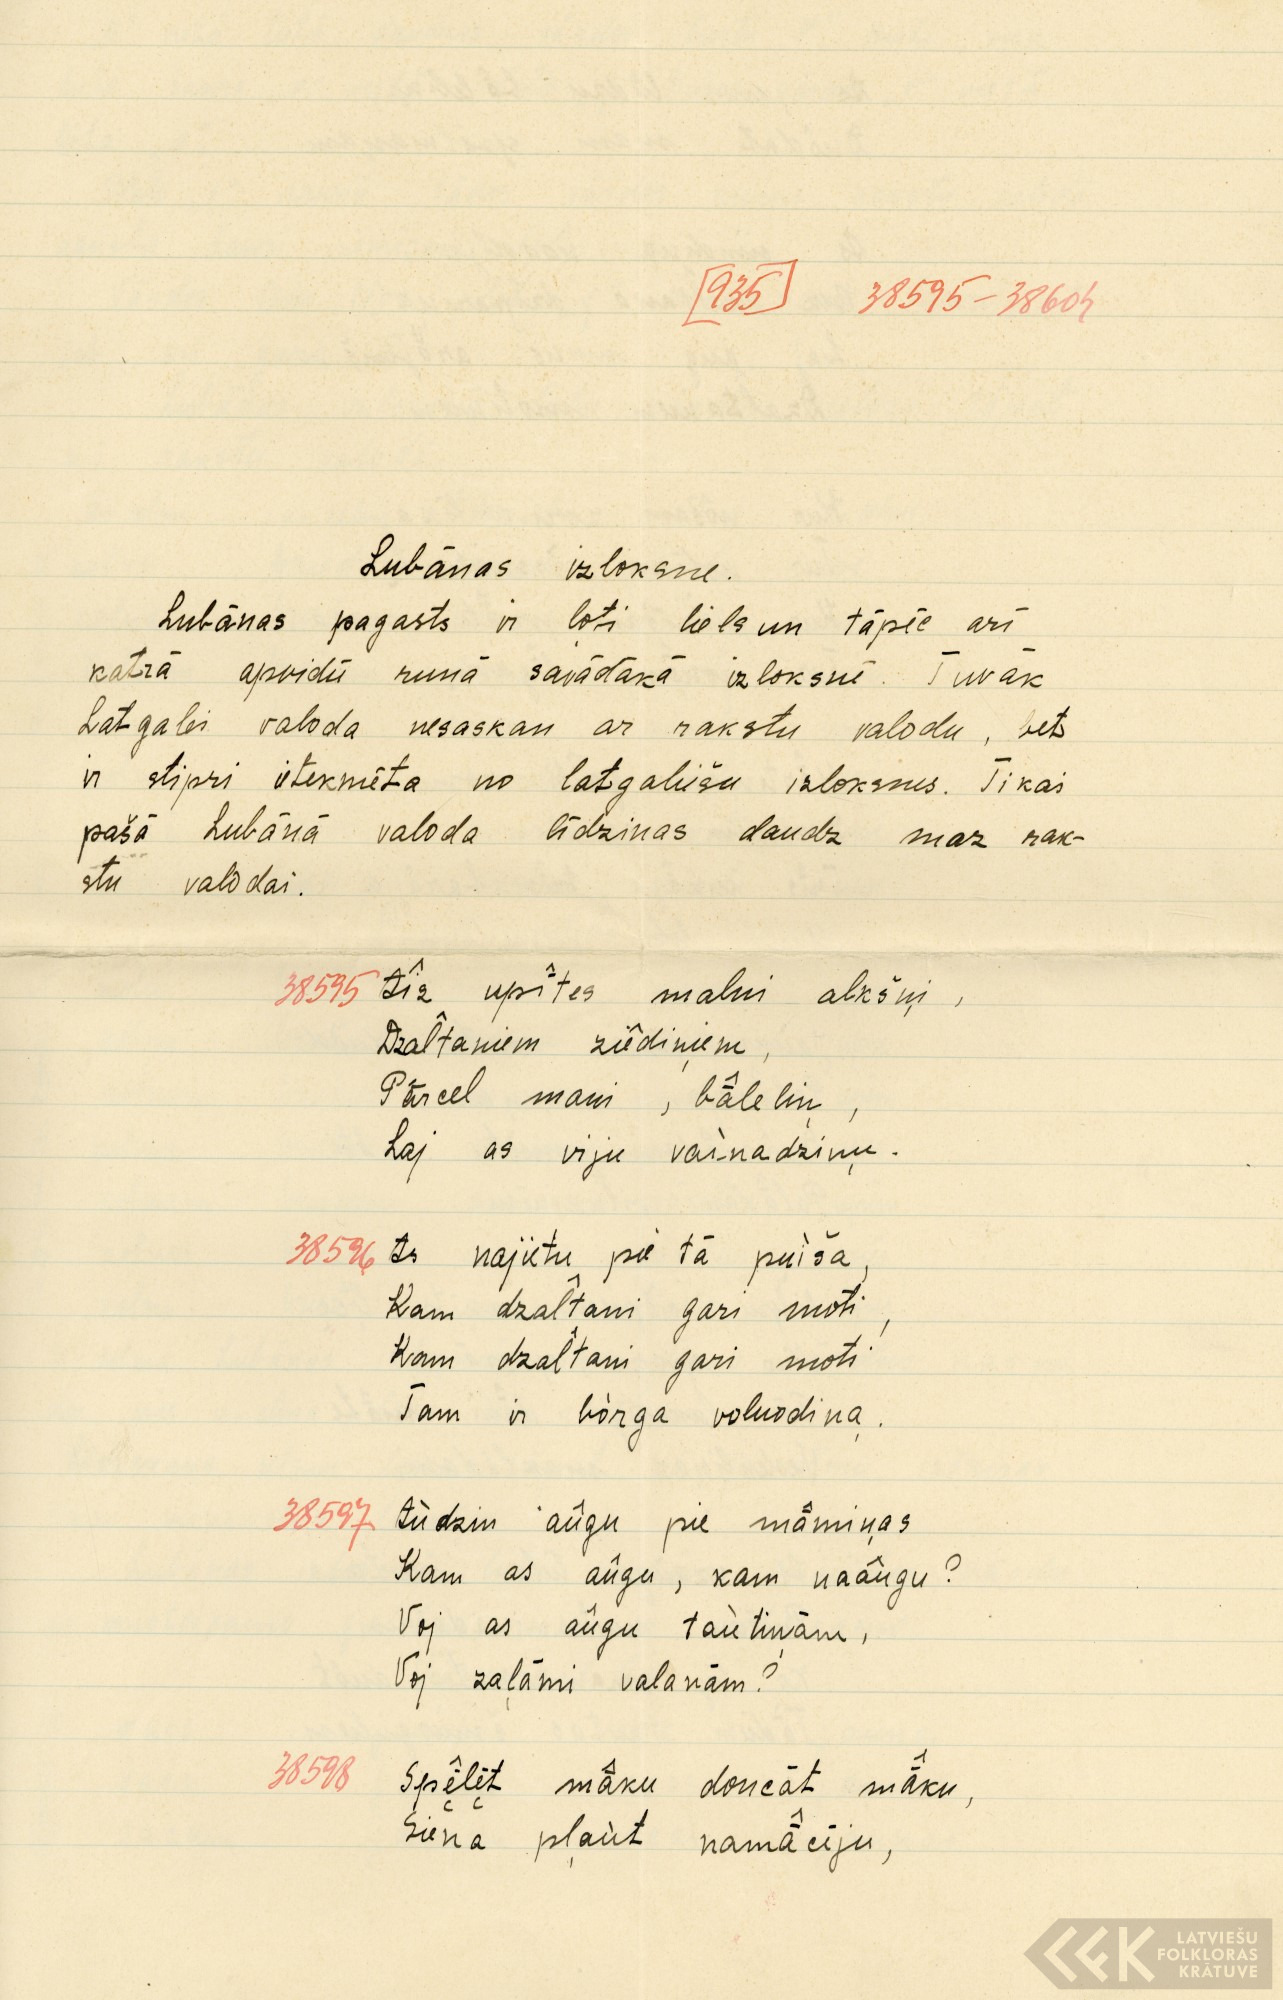 [935] 38595–38604
Lubānas izloksne.
Lubānas pagasts ir ļoti liels un tāpēc arī
katrā apvidū runā savādākā izloksnē. Tuvāk
Latgalei valoda nesaskan ar rakstu valodu, bet
ir stipri ietekmēta no latgaliešu izloksnes. Tikai
pašā Lubānā valoda līdzinas daudz maz rak-
stu valodai.
38595 Aîz upîtes malni alkšņi,
Dzal̂taniem ziêdiņiem,
Pārcel mani, bā̂leliņ,
Laj as viju vaìnadziņu.
38596 As najietu piê tā puìša,
Kam dzal̂tani gari moti,
Kam dzal̂tani gari moti
Tam ir bòrga voluodiņa.
38597 Aùdzin aûgu pie mā̂miņas
Kam as aûgu, kam naaûgu?
Voj as aûgu taùtiņām,
Voj zaļāmi valanām?
38598 Spē̂lēt mā̂ku doncāt mā̂ku,
Siena pļaùt namā̂cēju,
LATVIEŠU
FOLKLORAS
KRĀTUVE